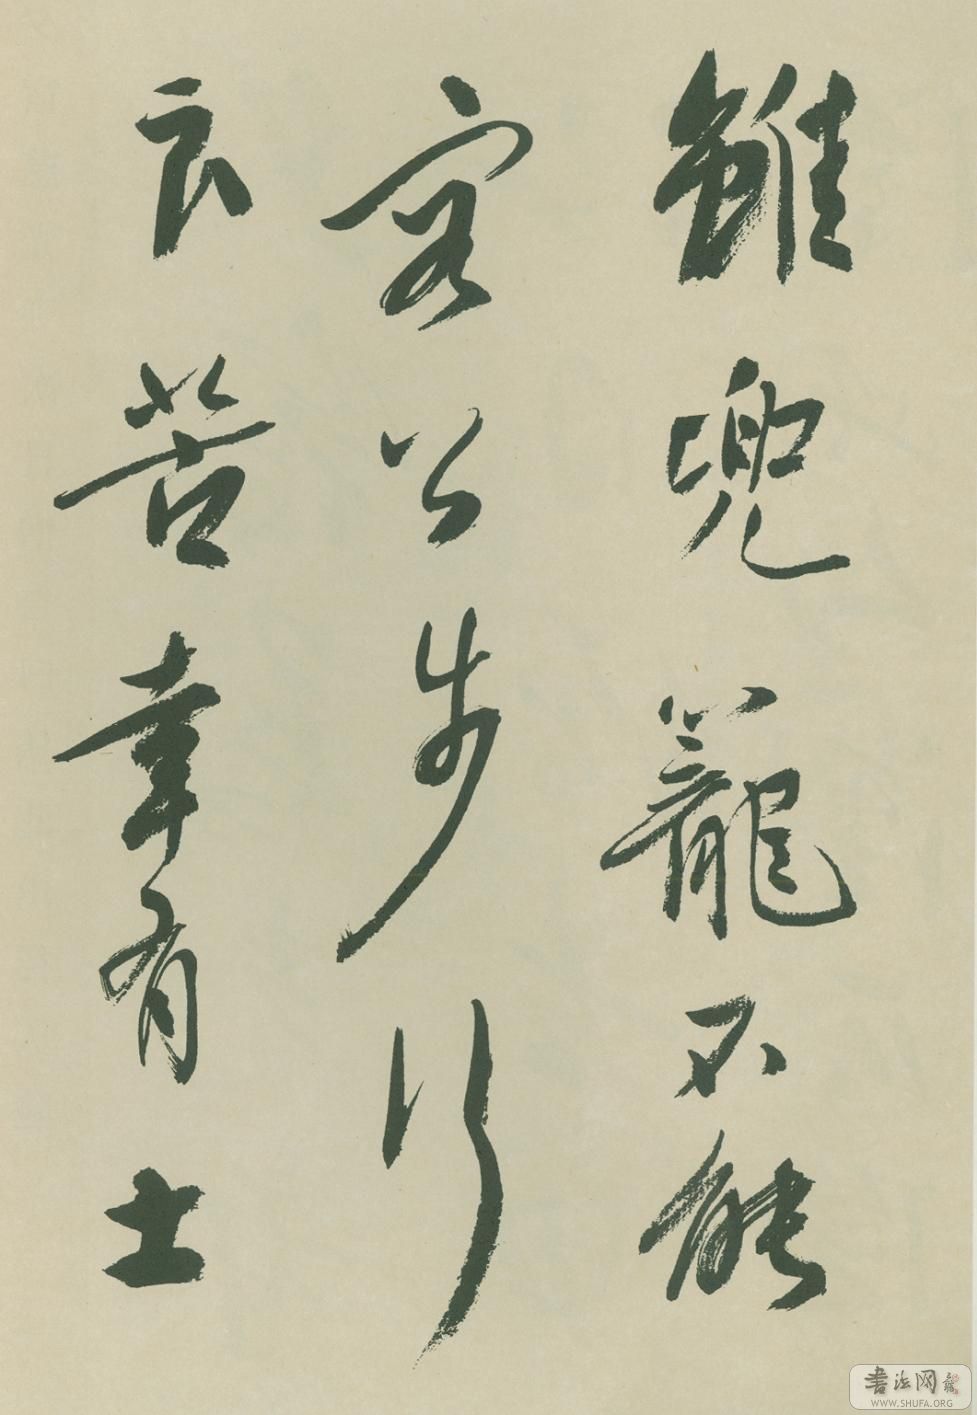 雖兜籠不能
容公步行
良苦幸有士
書法网
WWW.SHUFA.ORG